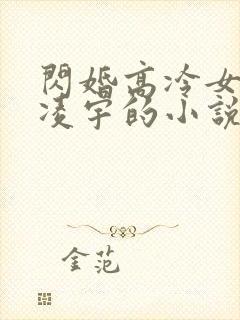 閃婚高冷女
凌宇的小說
金范